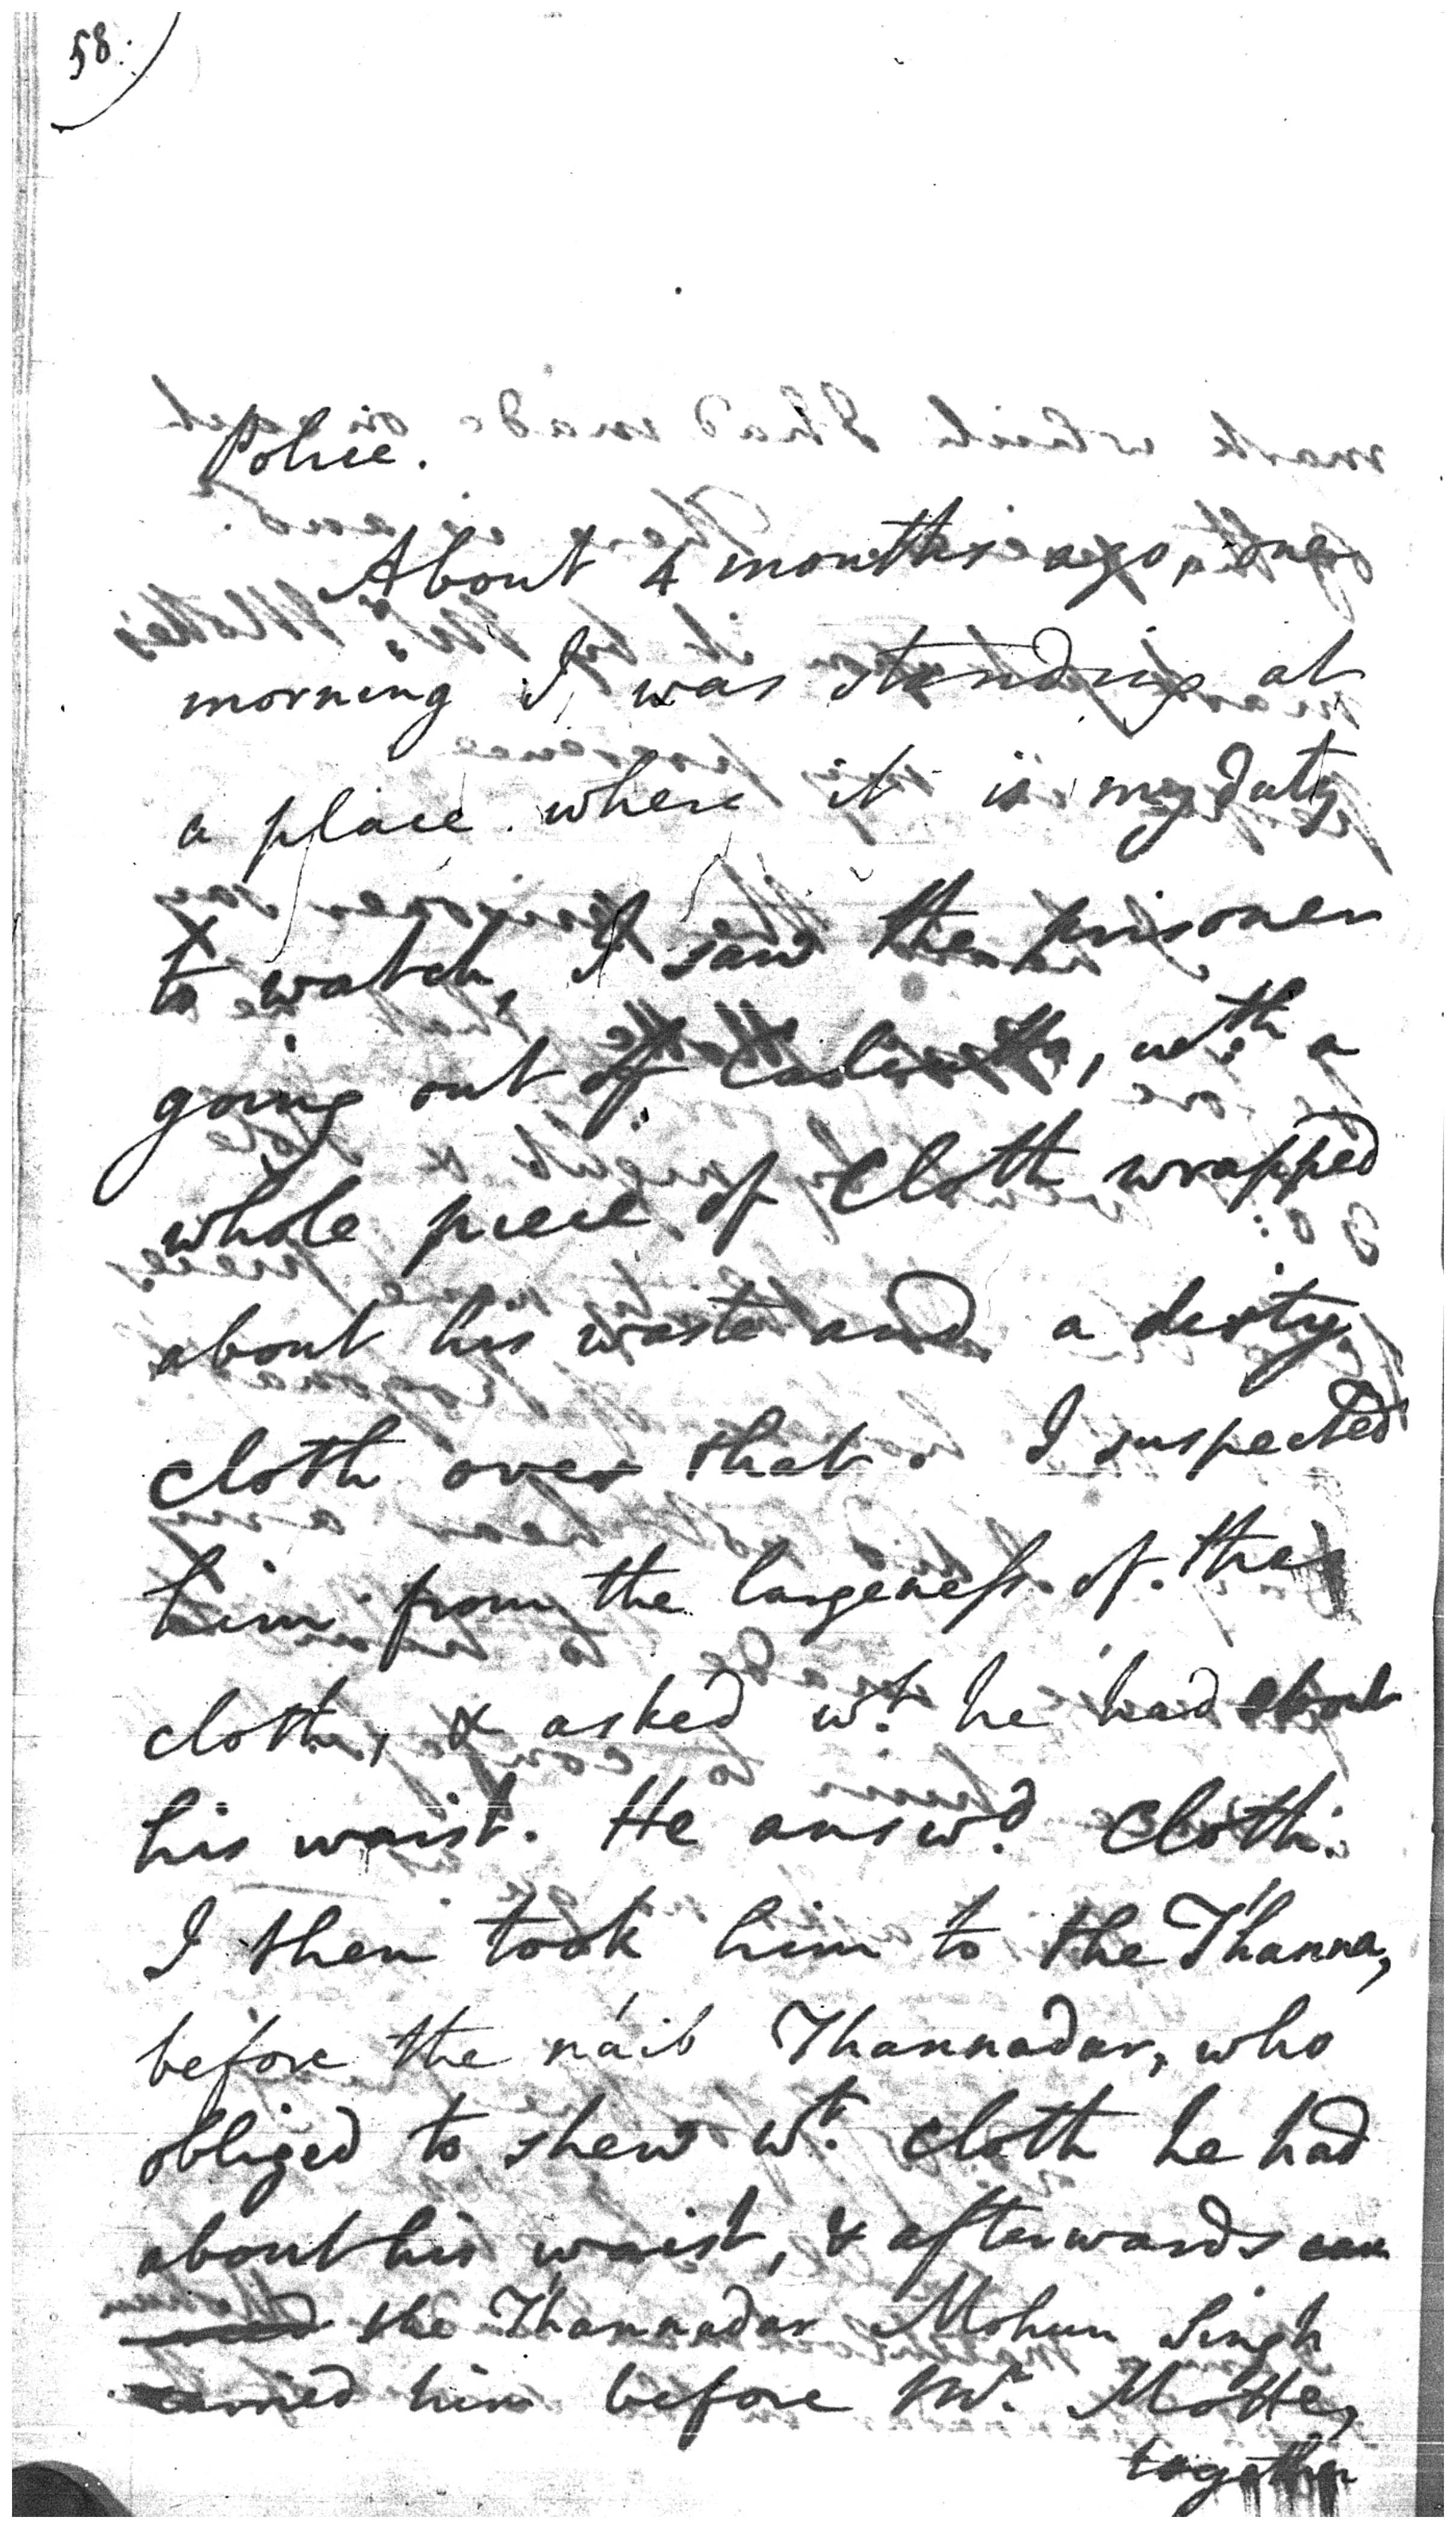 58.
Police.
About 4 months ago, one
morning I was standing at
a place where it is my duty
to watch, I saw the prisoner
going out of Calcutta, with a
whole piece of Cloth wrapped
about his waste and a dirty
cloth over that. I suspected
him from the largeness of the
cloth, & asked wt. he had about
his waist. He answd. Cloth.
I then took him to the Thanna,
before the náib Thannadar, who
obliged to shew wt. cloth he had
about his waist, & afterwards
the Thannadar Mohun Singh
carried him before Mr. Motte,
together